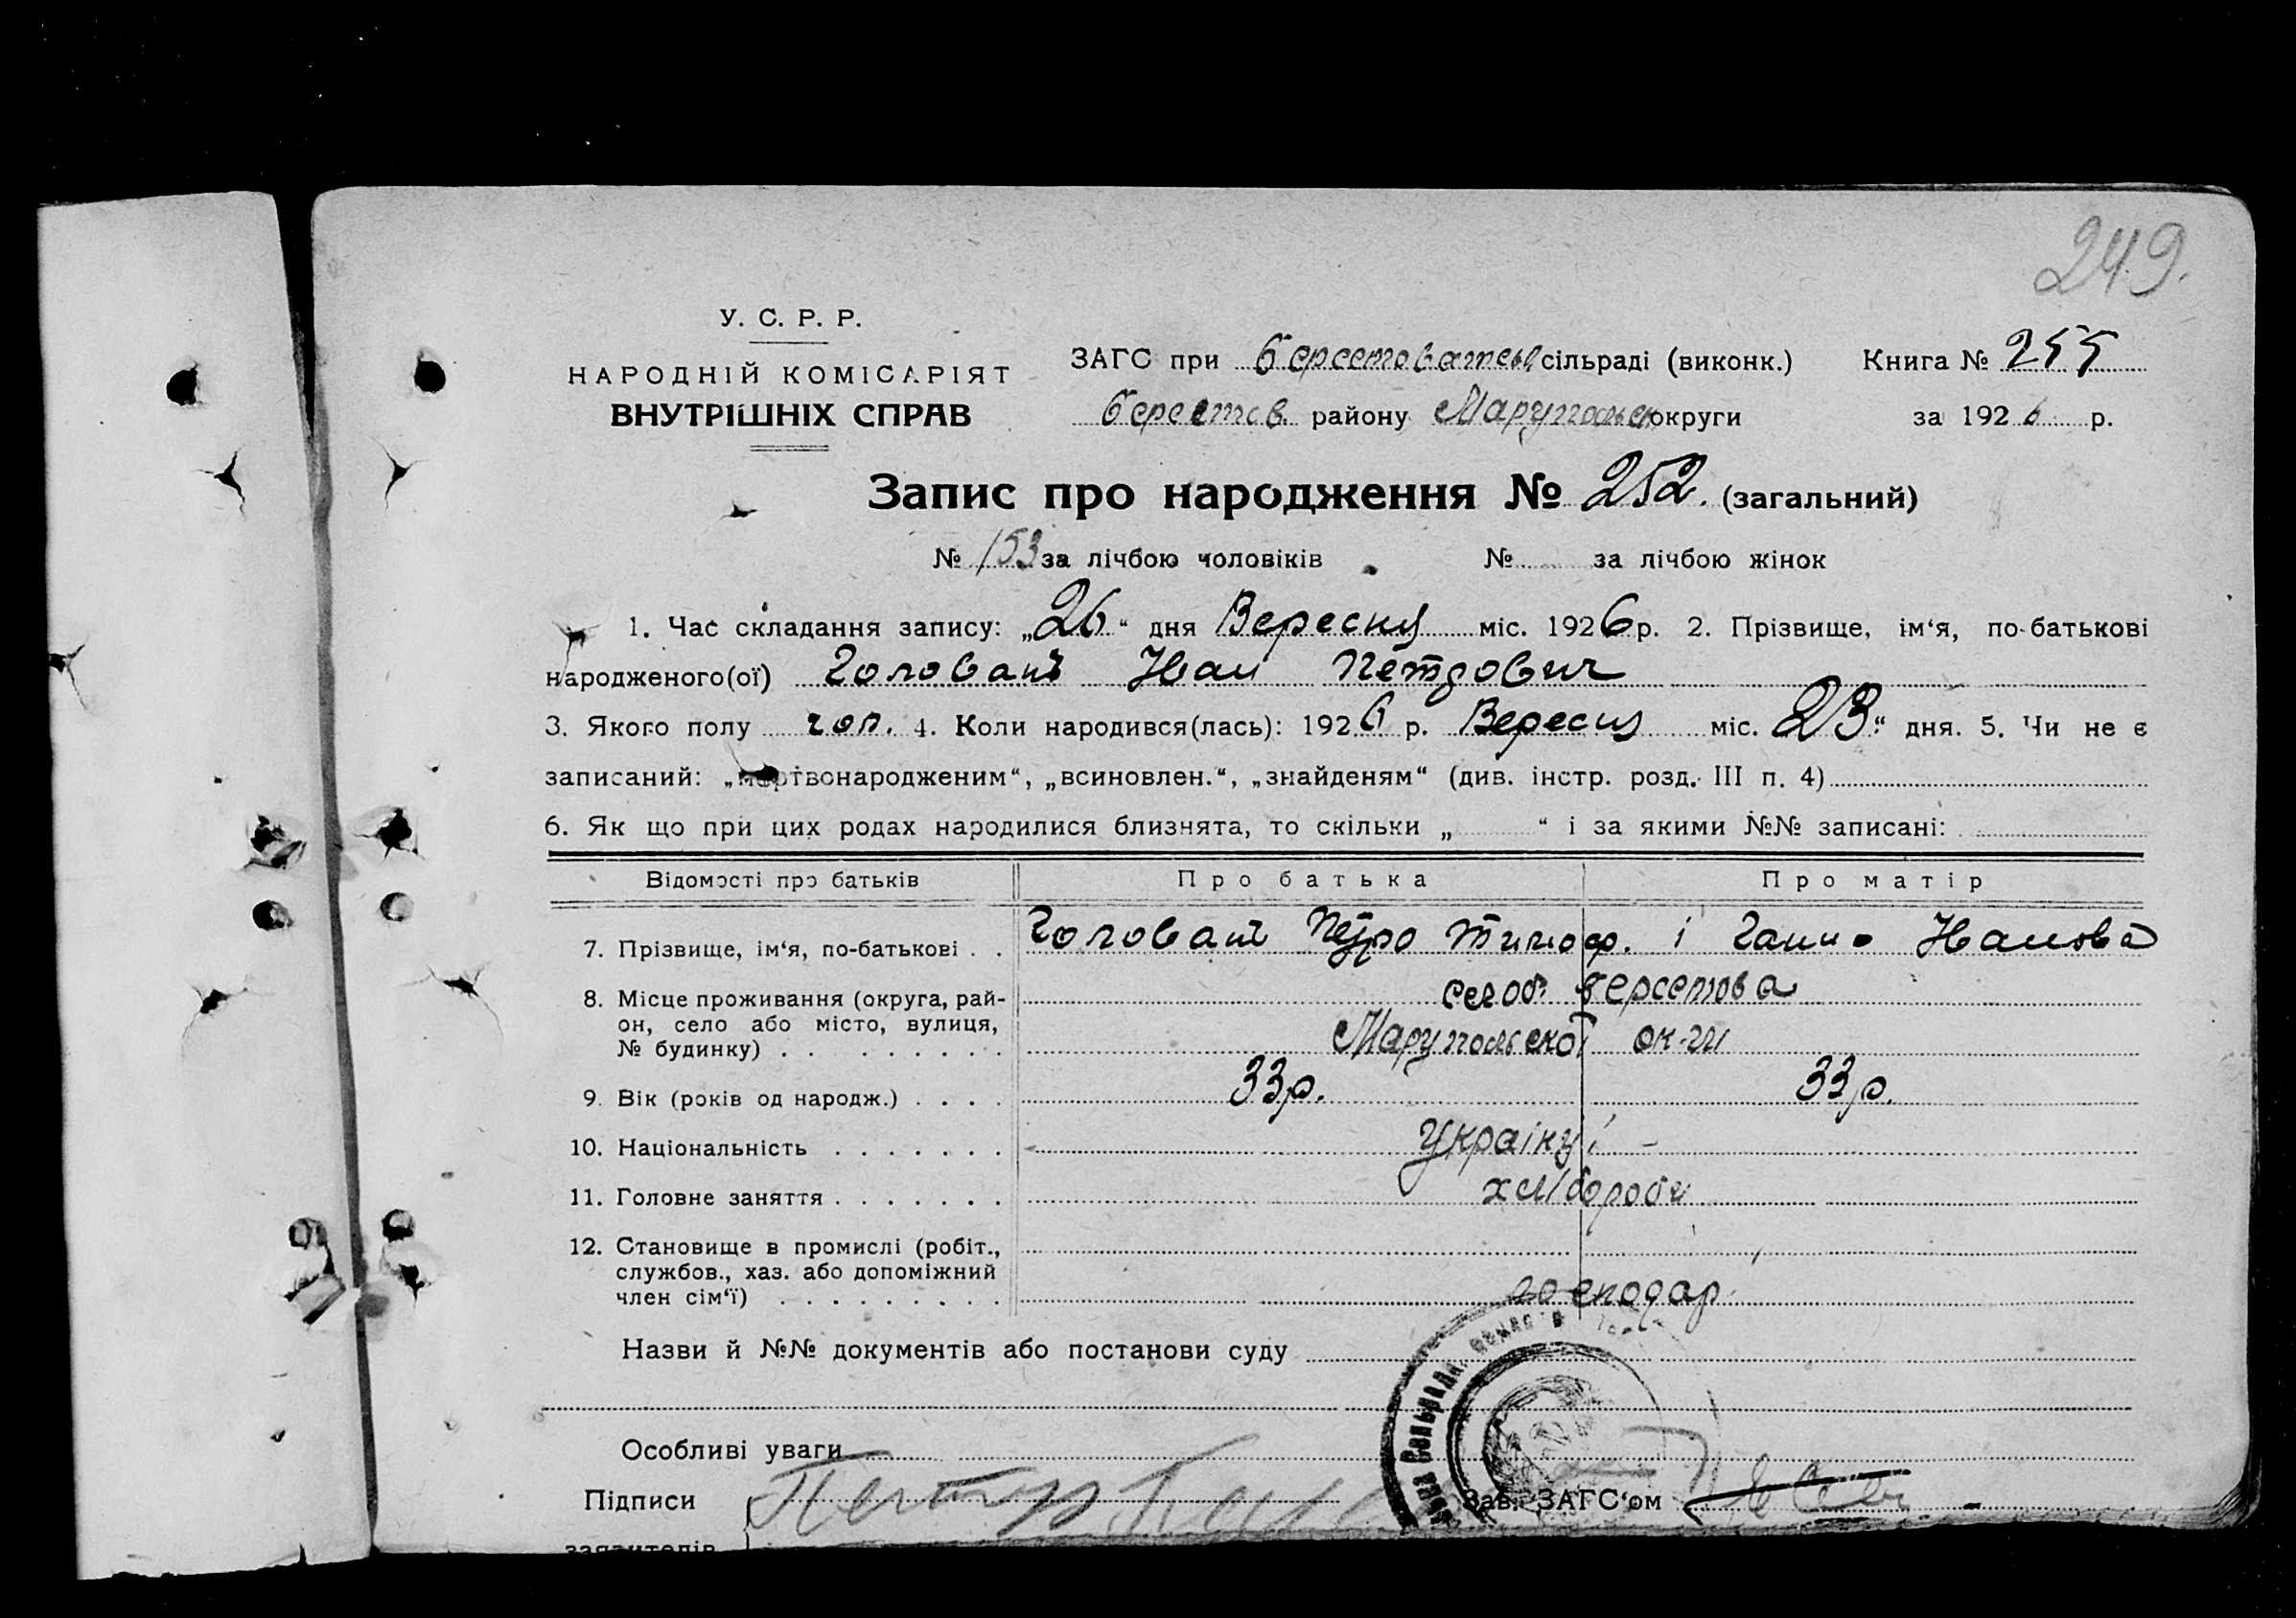 249.
У. С. Р. Р.
НАРОДНІЙ КОМІСАРІЯТ
ВНУТРІШНІХ СПРАВ
ЗАГС при Берестоватськ сільраді (виконк.) Книга № 255
Берестов. району Маріупольськ округи за 1926 р.
Запис про народження № 252. (загальний)
№ 153 за лічбою чоловіків № за лічбою жінок
1. Час складання запису: „26“ дня Вересня міс. 1926 р. 2. Прізвище, ім‘я, по-батькові
народженого(ої) Головань Иван Петрович
3. Якого полу чол. 4. Коли народився(лась): 1926 р. Вересня міс. 23“ дня. 5. Чи не є
записаний: „мертвонародженим“, „всиновлен.“, „знайденям“ (див. інстр. розд. III п. 4)
6. Як що при цих родах народилися близнята, то скільки „ “ і за якими №№ записані:
Відомості про батьків Про батька Про матір
7. Прізвище, ім‘я, по-батькові . . Головань Петро Тимоф. і Ганна Иванова
8. Місце проживання (округа, рай-
он, село або місто, вулиця,
№ будинку) . . . . . . . . Маріупольскої ок-ги
9. Вік (років од народж.) . . . . 33 р. 33 р.
10. Національність . . . . . . . Українці -
11. Головне заняття . . . . . . . хліброби
12. Становище в промислі (робіт.,
службов., хаз. або допоміжний
член сім‘ї) . . . . . . . . . господар
Назви й №№ документів або постанови суду
Особливі уваги
Підписи Зав. ЗАГС‘ом
заявителів